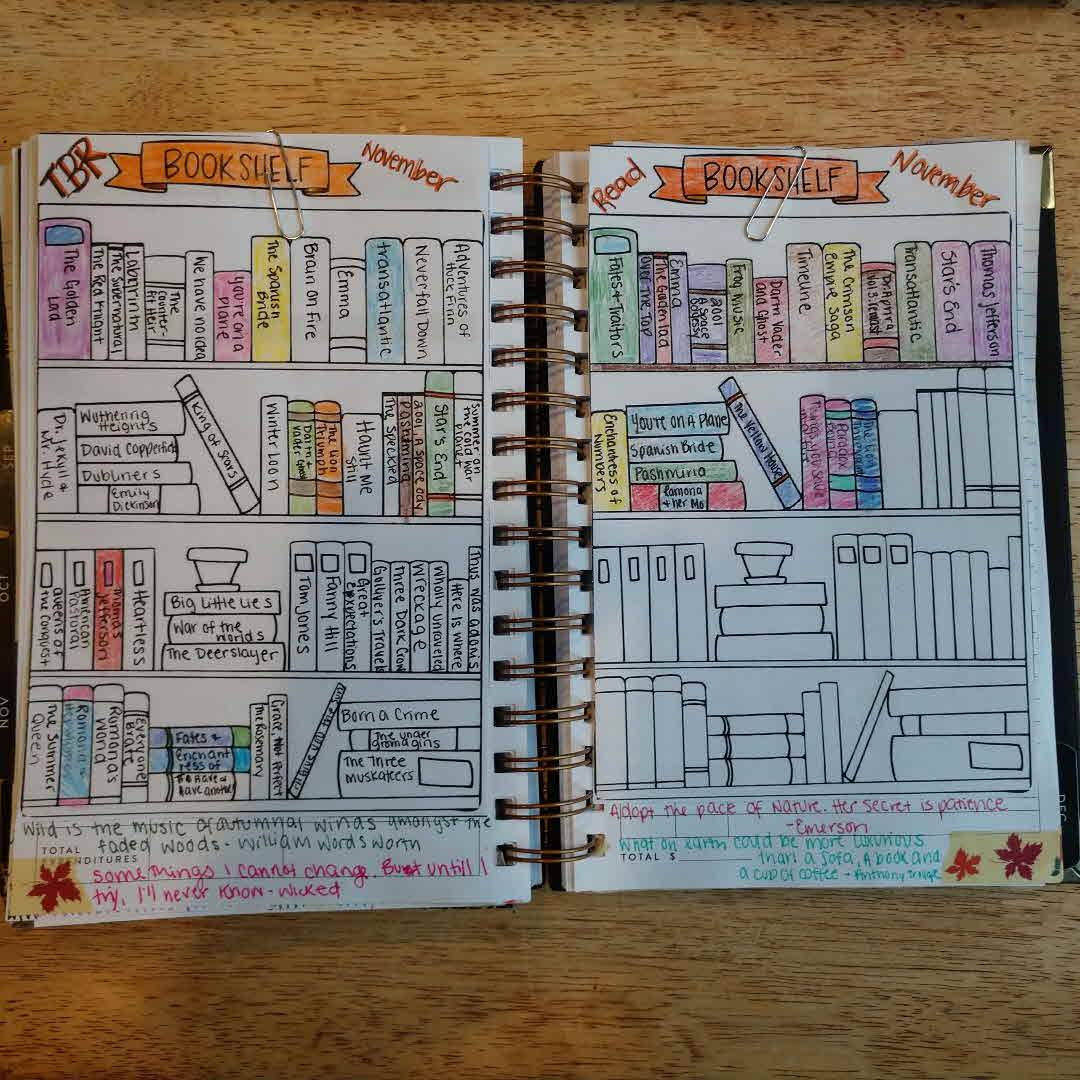 TBR
BOOKSHELF
November
The Golden
Lad
The Real
The Supernatural
Labyrinth
The
Counter-
We have no idea
You're on a
Plane
The Spanish
Bride
Brain on Fire
Emma
transatlantic
Neverfall Down
Adventures of
Huck Finn
Dr. Jekyll &
Mr. Hyde
Wuthering
Heights
David Copperfield
Dubliners
Emily
Dickinson
King of Scars
Winter Loon
Darth &
Vader Ghost
The Lion
Triumph
Haunt Me
Still
The Speckled
Pashmina
2001, A Space Ody
Star's End
Summer on
the cold war
planet
Queens of
the Conquest
American
Pastoral
Thomas
Jefferson
Heartless
Big Little Lies
War of the
Worlds
The Deerslayer
Tom Jones
Fanny Hill
Great
Expectations
Gulliver's Travels
Three Dark Crow
Wreckage
Wholly Unraveled
Here is where
Thus was adonis
The Summer
Queen
Ramona &
Ramona's
World
Everyone
Brave
Fates &
Enchant
ress of
Grace, Not Perfect
The Rosemary
Born a Crime
The under
The Three
Muskateers
Wild is the music of autumnal winds amongst the
faded woods - William Wordsworth
TOTAL
some things I cannot change. But untill I
try, I'll never know - Wicked
Read
BOOKSHELF
November
Fates & Traitors
Over the Top
The Golden Lad
Emma
2001
A Space
Odyssey
Frog Music
Darth Vader
and Ghost
Timeline
The Crimson
Empire Saga
Dr. Aphra
Transatlantic
Star's End
Thomas Jefferson
Enchantress of
Numbers
You're on A Plane
Spanish Bride
Pashmina
Ramona
& her Mo
The Yellow House
Paradox
Adopt the pace of Nature. Her secret is patience
-Emerson
What on earth could be more luxurious
TOTAL $
than a sofa, A book and
a cup of coffee - Anthony
SEP
OCT
NOV
DEC